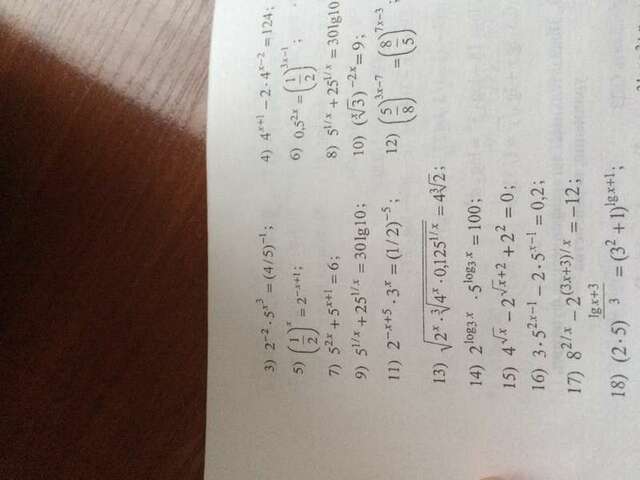 3) 2^{-2} · 5^{x^3} = (4/5)^{-1}; 4) 4^{x+1} - 2 · 4^{x-2} = 124;
5) (1/2)^x = 2^{-x+1}; 6) 0,5^{2x} = (1/2)^{3x-1};
7) 5^{2x} + 5^{x+1} = 6; 8) 5^{1/x} + 25^{1/x} = 30lg10
9) 5^{1/x} + 25^{1/x} = 30lg10; 10) (\sqrt[x]{3})^{-2x} = 9;
11) 2^{-x+5} · 3^x = (1/2)^{-5}; 12) (5/8)^{3x-7} = (8/5)^{7x-3};
13) \sqrt{2^x · \sqrt[3]{4^x · 0,125^{1/x}}} = 4\sqrt[3]{2};
14) 2^{log_3 x} · 5^{log_3 x} = 100;
15) 4^{\sqrt{x}} - 2^{\sqrt{x}+2} + 2^2 = 0;
16) 3 · 5^{2x-1} - 2 · 5^{x-1} = 0,2;
17) 8^{2/x} - 2^{(3x+3)/x} = -12;
18) (2 · 5)^{\frac{lg x+3}{3}} = (3^2 + 1)^{lg x+1};